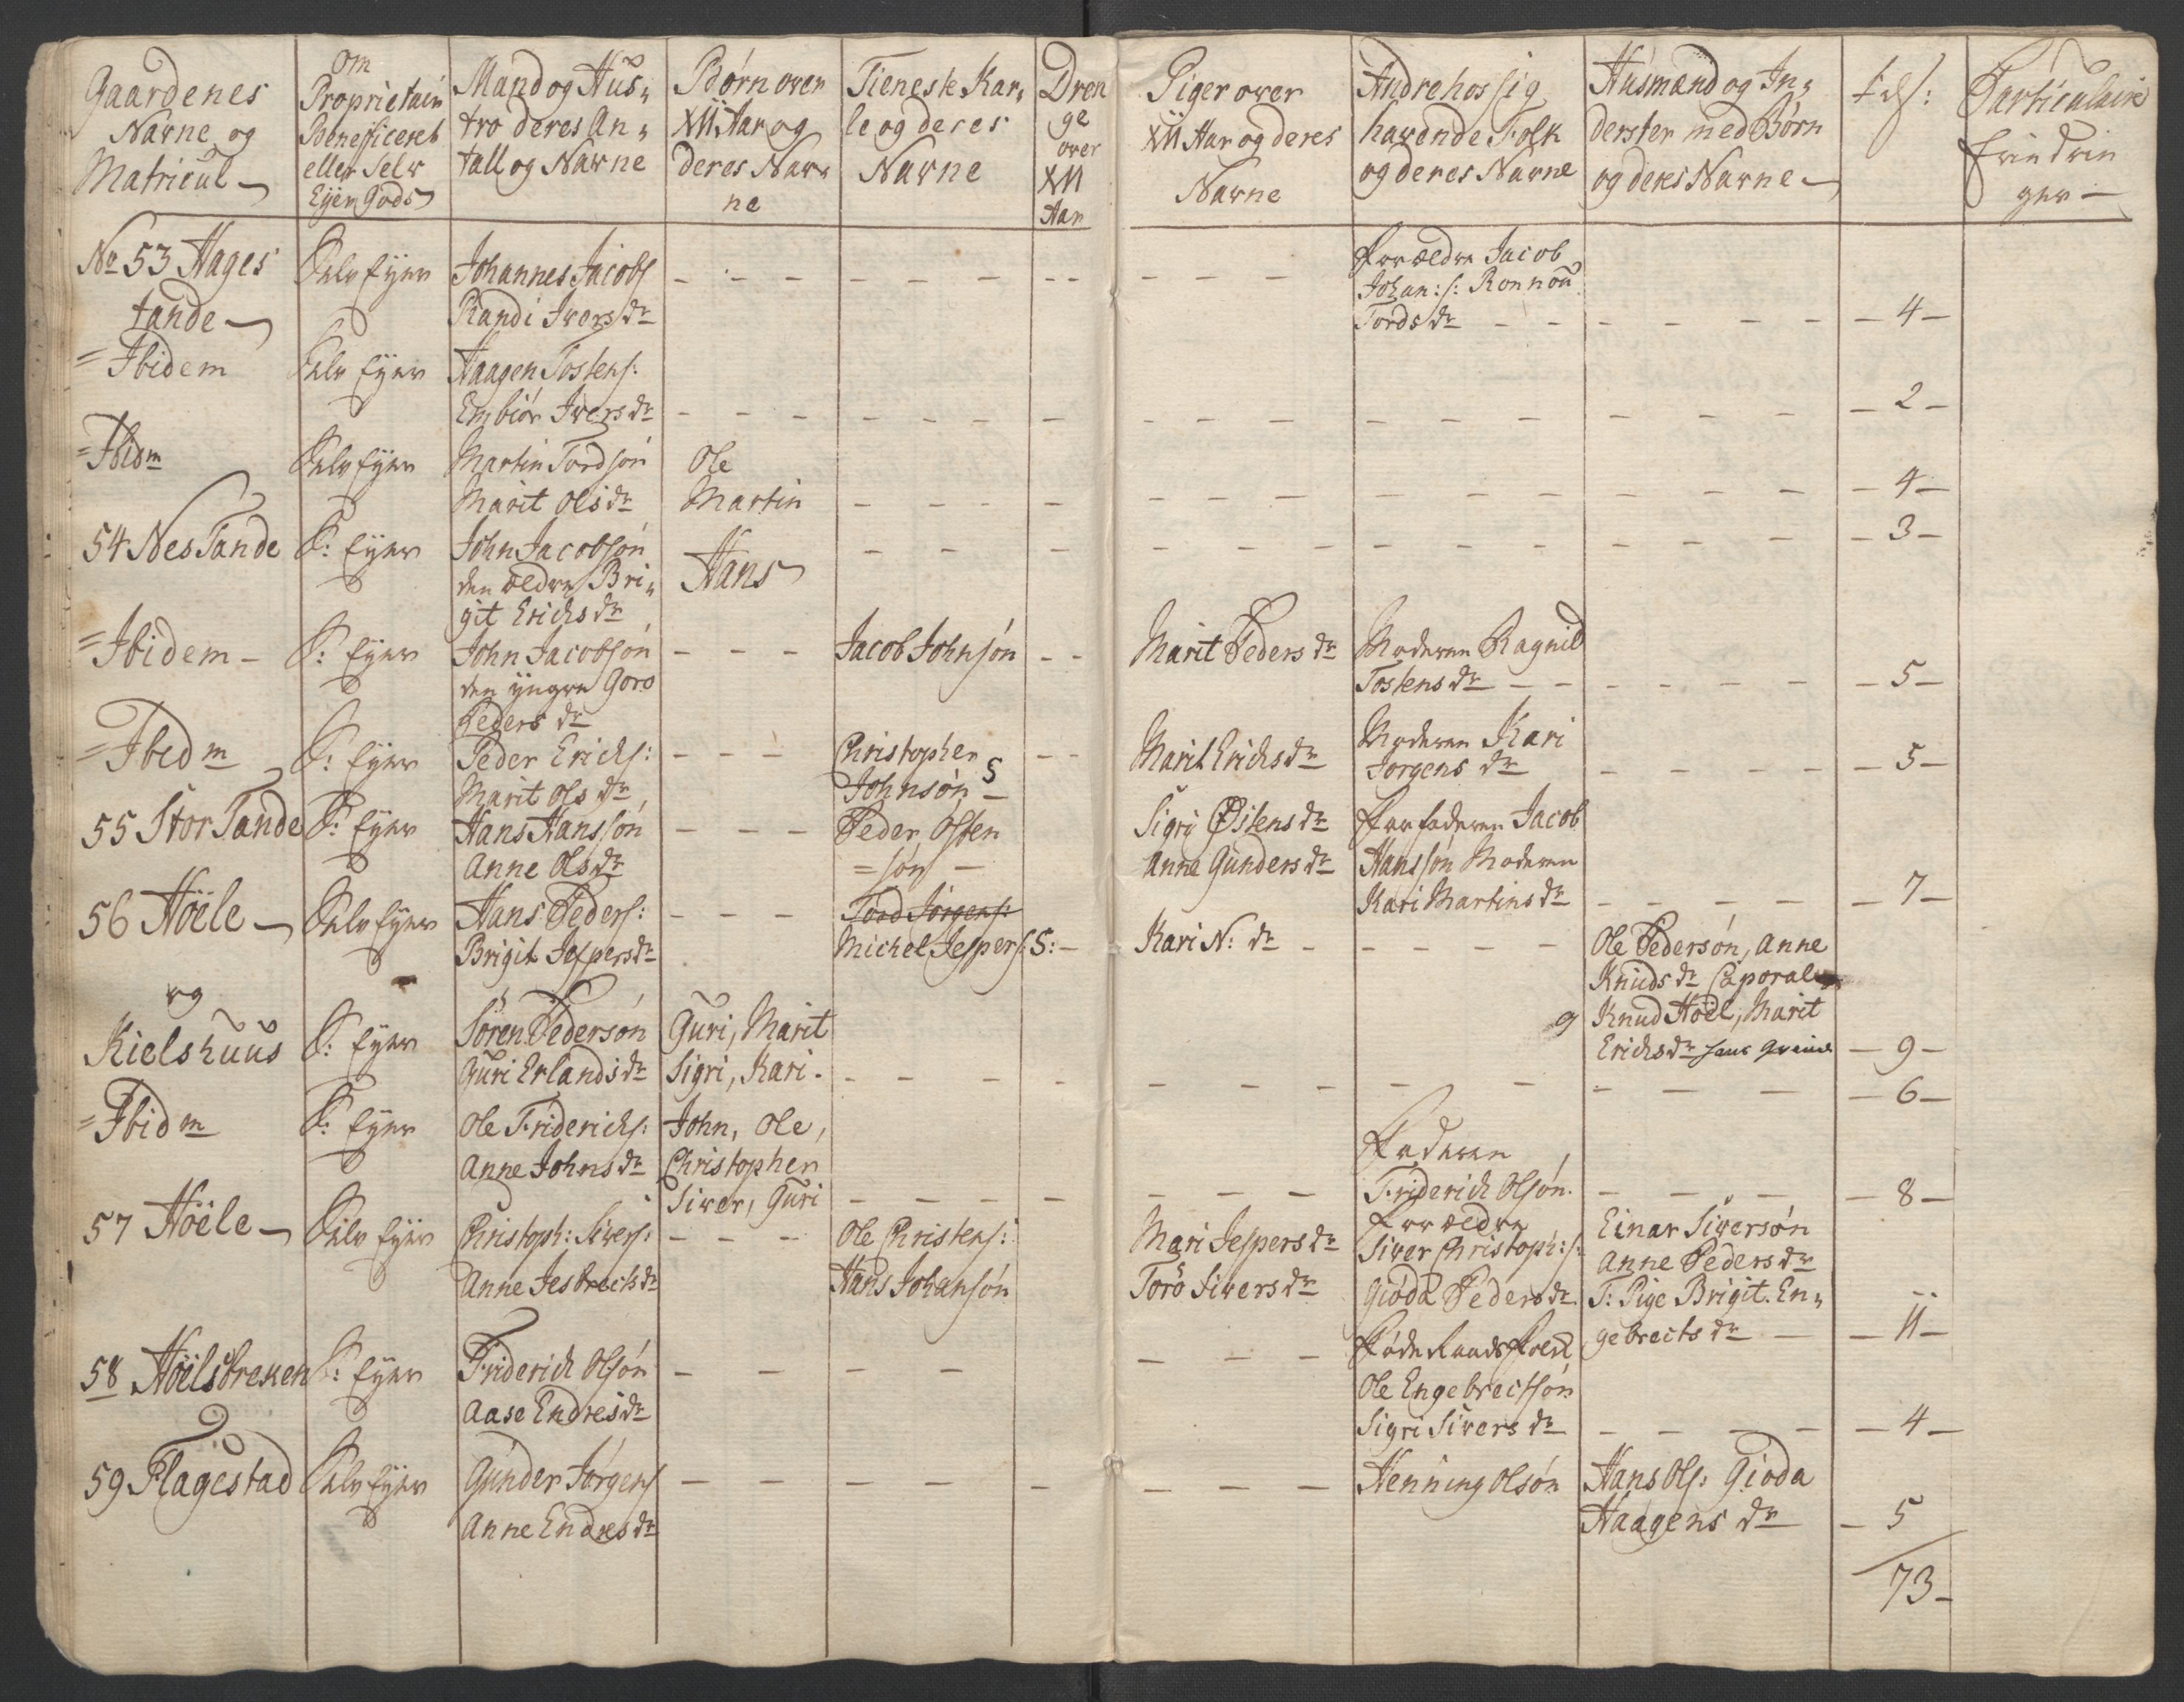 Gaardenes
Navne og
Matricul
Om
Proprietair
Beneficeret
eller Selv
Ejer Gods
Mand og Hus,,
tro deres An,,
tall og Navne
Børn over
XII Aar og
deres Nav,,
ne
Tieneste Kar,,
le og deres
Navne
Dren
ge
over
XII
Aar
Piger over
XII Aar og deres
Navne
Andre hos sig
havende Folk
og deres Navne
Husmænd og In,,
derster med Børn
og deres Navne
Particulaire
Erindrin
ger
No 53 Hages
tande
Selv Eyer
Johannes Jacobs
Randi Ivers dr
Forældre Jacob
Johan: s: Ronnou
Tords dr
4
= Ibidem
Selv Eyer
Haagen Tostens:
Embiør Ivers dr
2
= Ibidm
Selv Eyer
Martin Tordsøn
Marit Ols dr
Ole
Martin
4
54 Nes Tande
S: Eyer
John Jacobsøn
den ældre Bri,,
git Erichs dr
Hans
3
= Ibidem
S: Eyer
John Jacobsøn
den yngre Goro
Peders dr
Jacob Johnsøn
Marit Peders dr
Moderen Ragnild
Tostens dr
5
= Ibidm
S: Eyer
Peder Erichs:
Marit Ols dr
Christopher
Johnsøn S
Marit Erichs dr
Moderen Kari
Jorgens dr
5
55 Stor Tande
S: Eyer
Hans Hanssøn
Anne Ols dr
Peder Osten
= søn
Sigri Østens dr
Anne Gunders dr
Forfaderen Jacob
Hanssøn Moderen
Kari Martins dr
7
56 Høele
Selv Eyer
Hans Peders:
Brigit Jespers dr
Tord Jørgens:
Michel Jespers: S:
Kari N: dr
Ole Pedersøn, Anne
Knuds dr Caporal
Knud Høel, Marit
Erichs dr
9
9
og
Kielshuus
S: Eyer
Søren Pedersøn
Guri Erlands dr
Guri, Marit
Sigri, Kari
6
= Ibidm
S: Eyer
Ole Friderichs:
Anne Johns dr
John, Ole,
Christopher
Siver, Guri
Faderen
Friderich Olsøn
8
57 Høele
Selv Eyer
Christoph: Sivers:
Anne Jesbrects dr
Ole Christens:
Hans Johansøn
Mari Jespers dr
Toro Sivers dr
Forældre
Siver Christoph: s:
Gioda Peders dr
Einar Siversøn
Anne Peders dr
T: Pige Brigit. En,,
gebrects dr
11
58 Høelsbreken
S: Eyer
Friderich Olsøn
Aase Endres dr
Føderaads Folk
Ole Engebrectsøn
Sigri Sivers dr
4
59 Flagestad
Selv Eyer
Gunder Jørgens
Anne Endres dr
Henning Olsøn
Hans Ols: Gioda
Haagens dr
5
73